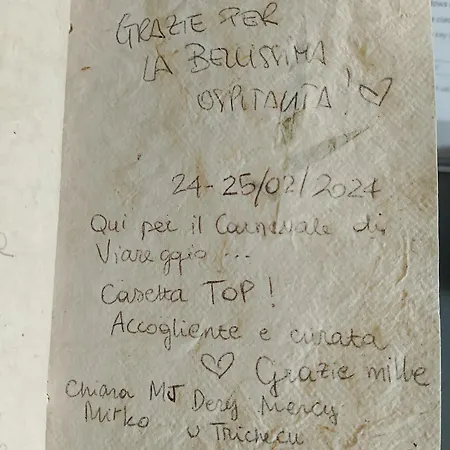 GRAZIE PER
LA BELLISSIMA
OSPITALITA'!
24-25/02/2024
Qui per il Carnevale di
Viareggio...
Casetta TOP!
Accogliente e curata
Grazie mille
Chiara MJ Dery Mercy
Mirko